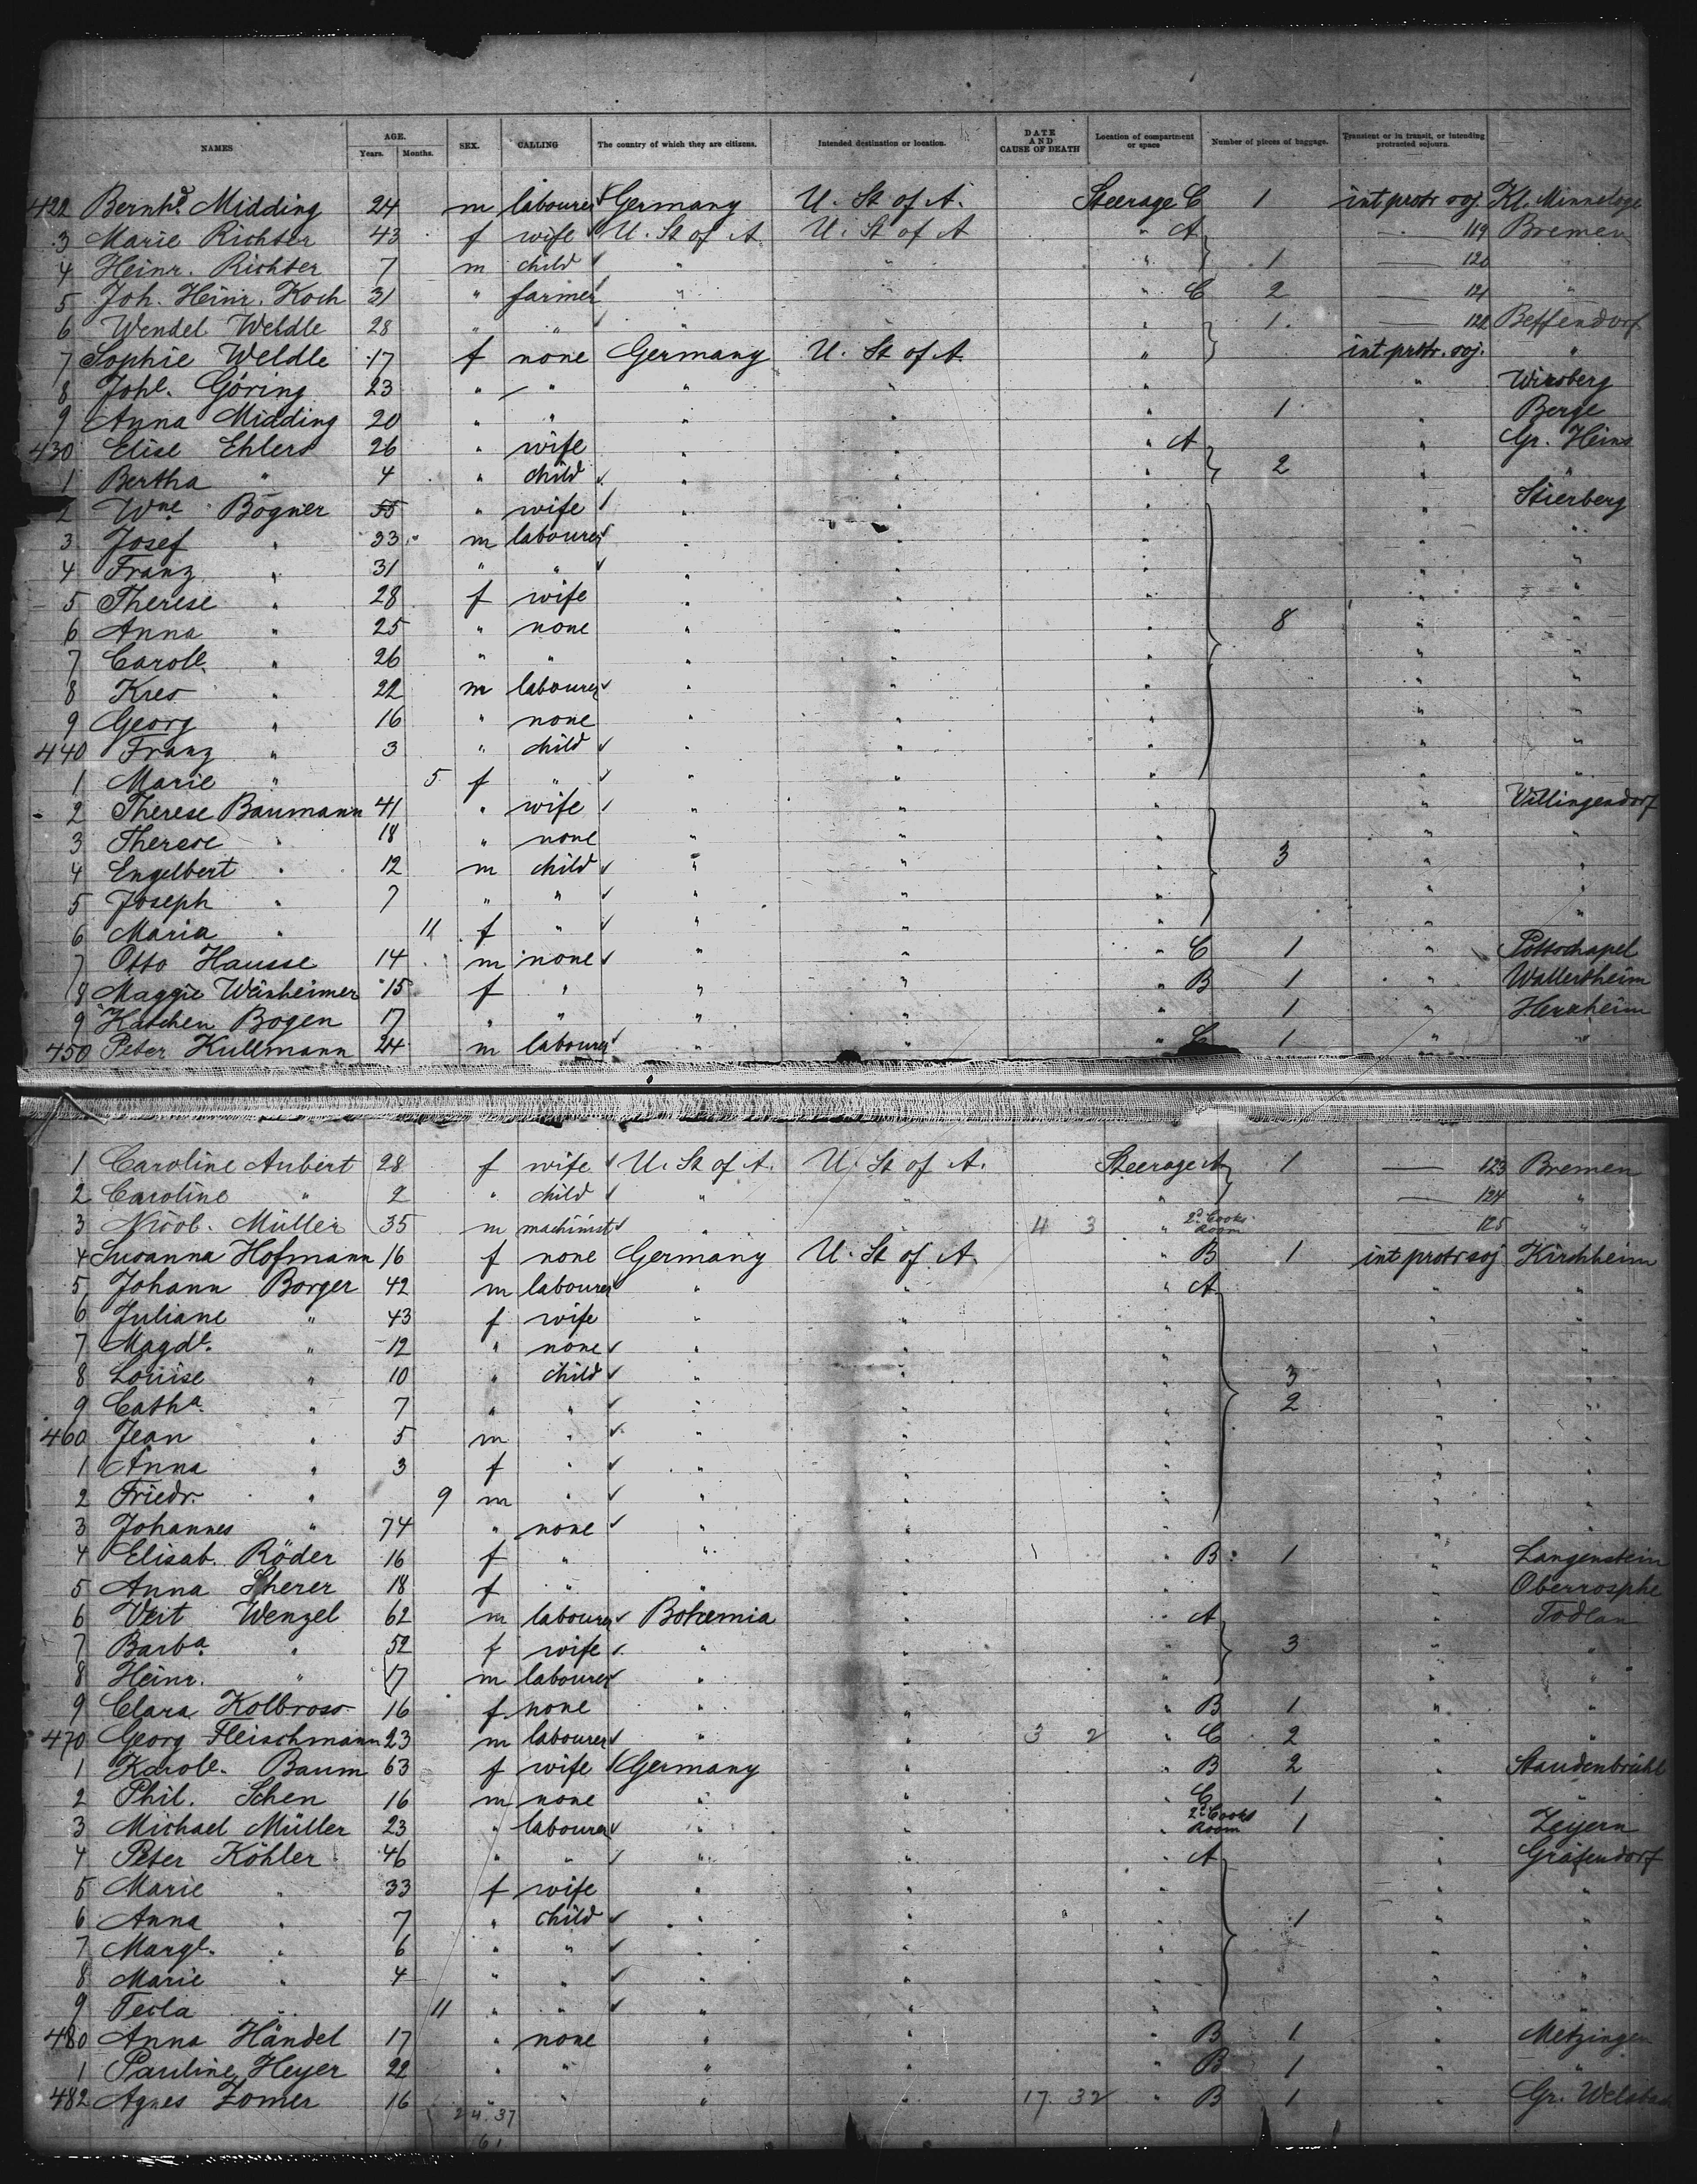 NAMES AGE. Years. Months. SEX. CALLING The country of which they are citizens. Intended destination or location. DATE AND CAUSE OF DEATH Location of compartment or space Number of pieces of baggage. Transient or in transit, or intending protracted sojourn.
422 Bernhd. Midding 24 m labourer Germany U. St of A. Steerage C 1 int protr soj Kl. Minnelage
3 Marie Richter 43 f wife U. St of A U. St of A " A — 119 Bremen
4 Heinr. Richter 7 m child " " " 1 — 120 "
5 Joh. Heinr. Koch 31 " farmer " " " C 2 — 121 "
6 Wendel Weldle 28 " " " " " 1 — 122 Beffendorf
7 Sophie Weldle 17 f none Germany U. St of A. " int protr. soj. "
8 Johe. Göring 23 " " " " " " Wirsberg
9 Anna Midding 20 " " " " " 1 " Berge
430 Elise Ehlers 26 " wife " " " A " Gr. Heins
1 Bertha " 4 " child " " " 2 " "
2 Wne Bogner 55 " wife " " " " Stierberg
3 Josef " 33 m labourer " " " " "
4 Franz " 31 " " " " " " "
5 Therese " 28 f wife " " " " "
6 Anna " 25 " none " " " 8 " "
7 Carole. " 26 " " " " " " "
8 Kres " 22 m labourer " " " " "
9 Georg " 16 " none " " " " "
440 Franz " 3 " child " " " " "
1 Marie " 5 f " " " " " "
2 Therese Baumann 41 " wife " " " " Villingendorf
3 Therese " 18 " none " " " " "
4 Engelbert " 12 m child " " " 3 " "
5 Joseph " 7 " " " " " " "
6 Maria " 11 f " " " " " "
7 Otto Hausse 14 m none " " " C 1 " Pottschapel
8 Maggie Weinheimer 15 f " " " " B 1 " Wallertheim
9 Katchen Bogen 17 " " " " " 1 " Herxheim
450 Peter Kullmann 24 m labourer " " " C 1 " "
1 Caroline Aubert 28 f wife U. St of A. U. St of A. Steerage A 1 — 123 Bremen
2 Caroline " 2 " child " " " — 124 "
3 Nicol. Müller 35 m machinist " " 4 3 " 2d Cooks Room 125 "
4 Susanna Hofmann 16 f none Germany U. St of A. " B 1 int protr soj Kirchheim
5 Johann Borger 42 m labourer " " " A " "
6 Juliane " 43 f wife " " " " "
7 Magde. " 12 " none " " " " "
8 Louise " 10 " child " " " 3 " "
9 Catha. " 7 " " " " " 2 " "
460 Jean " 5 m " " " " " "
1 Anna " 3 f " " " " " "
2 Friedr. " 9 m " " " " " "
3 Johannes " 74 " none " " " " "
4 Elisab. Röder 16 f " " " " B 1 " Langenstein
5 Anna Scherer 18 f " " " " " Oberrosphe
6 Veit Wenzel 62 m labourer Bohemia " " A " Todlau
7 Barba. " 52 f wife " " " 3 " "
8 Heinr. " 17 m labourer " " " " "
9 Clara Kolbross 16 f none " " " B 1 " "
470 Georg Fleischmann 23 m labourer " " 3 2 " C 2 " "
1 Karole. Baum 63 f wife Germany " " B 2 " Staudenbrühl
2 Phil. Schen 16 m none " " " C 1 " "
3 Michael Müller 23 " labourer " " " 2d Cooks Room 1 " Zeyern
4 Peter Köhler 46 " " " " " A " Gräfendorf
5 Marie " 33 f wife " " " " "
6 Anna " 7 " child " " " 1 " "
7 Margl. " 6 " " " " " " "
8 Marie " 4 " " " " " " "
9 Tecla " 11 " " " " " " "
480 Anna Händel 17 " none " " " B 1 " Metzingen
1 Pauline Heyer 22 " " " " " B 1 " "
482 Agnes Zomer 16 " " " " 17 32 " B 1 " Gr.
24. 37
61